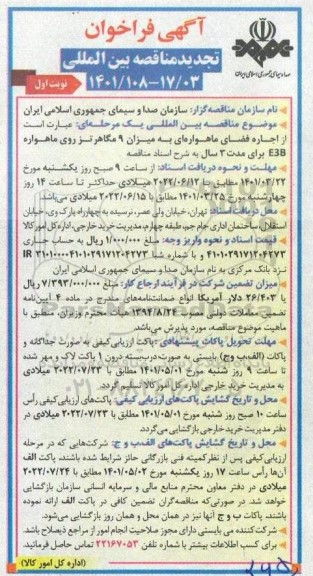 آگهی فراخوان
تجدید مناقصه بین المللی
۱۴۰۱/۱۰۸-۱۷/۰۳
نوبت اول
صدا و سیمای جمهوری اسلامی ایران
نام سازمان مناقصه‌گزار: سازمان صدا و سیمای جمهوری اسلامی ایران
موضوع مناقصه بین‌المللی یک مرحله‌ای: عبارت است
از اجاره فضای ماهواره‌ای به میزان ۹ مگاهرتز روی ماهواره
E3B برای مدت ۳ سال به شرح اسناد مناقصه
مهلت و نحوه دریافت اسناد: از ساعت ۹ صبح روز یکشنبه مورخ
۱۴۰۱/۰۳/۲۲ مطابق با ۲۰۲۲/۰۶/۱۲ میلادی حداکثر تا ساعت ۱۴ روز
چهارشنبه مورخ ۱۴۰۱/۰۳/۲۵ مطابق با ۲۰۲۲/۰۶/۱۵ میلادی می‌باشد.
محل دریافت اسناد: تهران، خیابان ولی عصر، نرسیده به چهارراه پارک وی، خیابان
استقلال، ساختمان اداری جام جم، طبقه چهارم، مدیریت خرید خارجی، اداره کل امور کالا
قیمت اسناد و نحوه واریز وجه: مبلغ ۱/۰۰۰/۰۰۰ ریال به حساب جاری
۴۱۰۱۰۲۹۱۷۱۲۰۴۲۷۳ و با شماره شبا IR ۲۱۰۱۰۰۰۰۴۱۰۱۰۲۹۱۷۱۲۰۴۲۷۳
نزد بانک مرکزی به نام سازمان صدا و سیمای جمهوری اسلامی ایران
میزان تضمین شرکت در فرآیند ارجاع کار: مبلغ ۷/۳۹۳/۰۰۰/۰۰۰ ریال
یا ۲۶/۴۰۳ دلار آمریکا انواع ضمانت‌نامه‌های مندرج در ماده ۴ آیین‌نامه
تضمین معاملات دولتی مصوب ۱۳۹۴/۸/۲۴ هیأت محترم وزیران، منطبق با
ماهیت موضوع مناقصه، مورد پذیرش می‌باشد.
مهلت تحویل پاکات پیشنهادی: پاکت ارزیابی کیفی به صورت جداگانه و
پاکات (الف، ب وج) بایستی به صورت دربسته درون ۱ پاکت لاک و مهر شده
تا ساعت ۹ روز شنبه مورخ ۱۴۰۱/۰۵/۰۱ مطابق با ۲۰۲۲/۰۷/۲۳ میلادی
به مدیریت خرید خارجی اداره کل امور کالا تسلیم گردد.
محل و تاریخ گشایش پاکت‌های ارزیابی کیفی: پاکت‌های ارزیابی کیفی رأس
ساعت ۱۰ صبح روز شنبه مورخ ۱۴۰۱/۰۵/۰۱ مطابق با ۲۰۲۲/۰۷/۲۳ میلادی در
دفتر مدیریت خرید خارجی بازگشایی می‌گردد.
محل و تاریخ گشایش پاکت‌های الف، ب و ج: شرکت‌هایی که در مرحله
ارزیابی کیفی پس از نظر کمیته فنی بازرگانی حائز شرایط شده باشند، پاکت الف
آن‌ها رأس ساعت ۱۷ روز یکشنبه مورخ ۱۴۰۱/۰۵/۰۲ مطابق با ۲۰۲۲/۰۷/۲۴
میلادی در دفتر معاون محترم منابع مالی و سرمایه انسانی سازمان بازگشایی
خواهد شد. در صورتی‌که مناقصه‌گران تضمین کافی در پاکت الف ارائه نموده
باشند، پاکات ب و ج آنها نیز در همان محل و همان روز بازگشایی می‌شود.
شرکت کننده می بایستی دارای مجوز صلاحیت انجام امور از مراجع ذیصلاح باشد.
برای کسب اطلاعات بیشتر با شماره تلفن ۲۲۱۶۷۰۵۳ تماس حاصل فرمائید.
(اداره کل امور کالا)